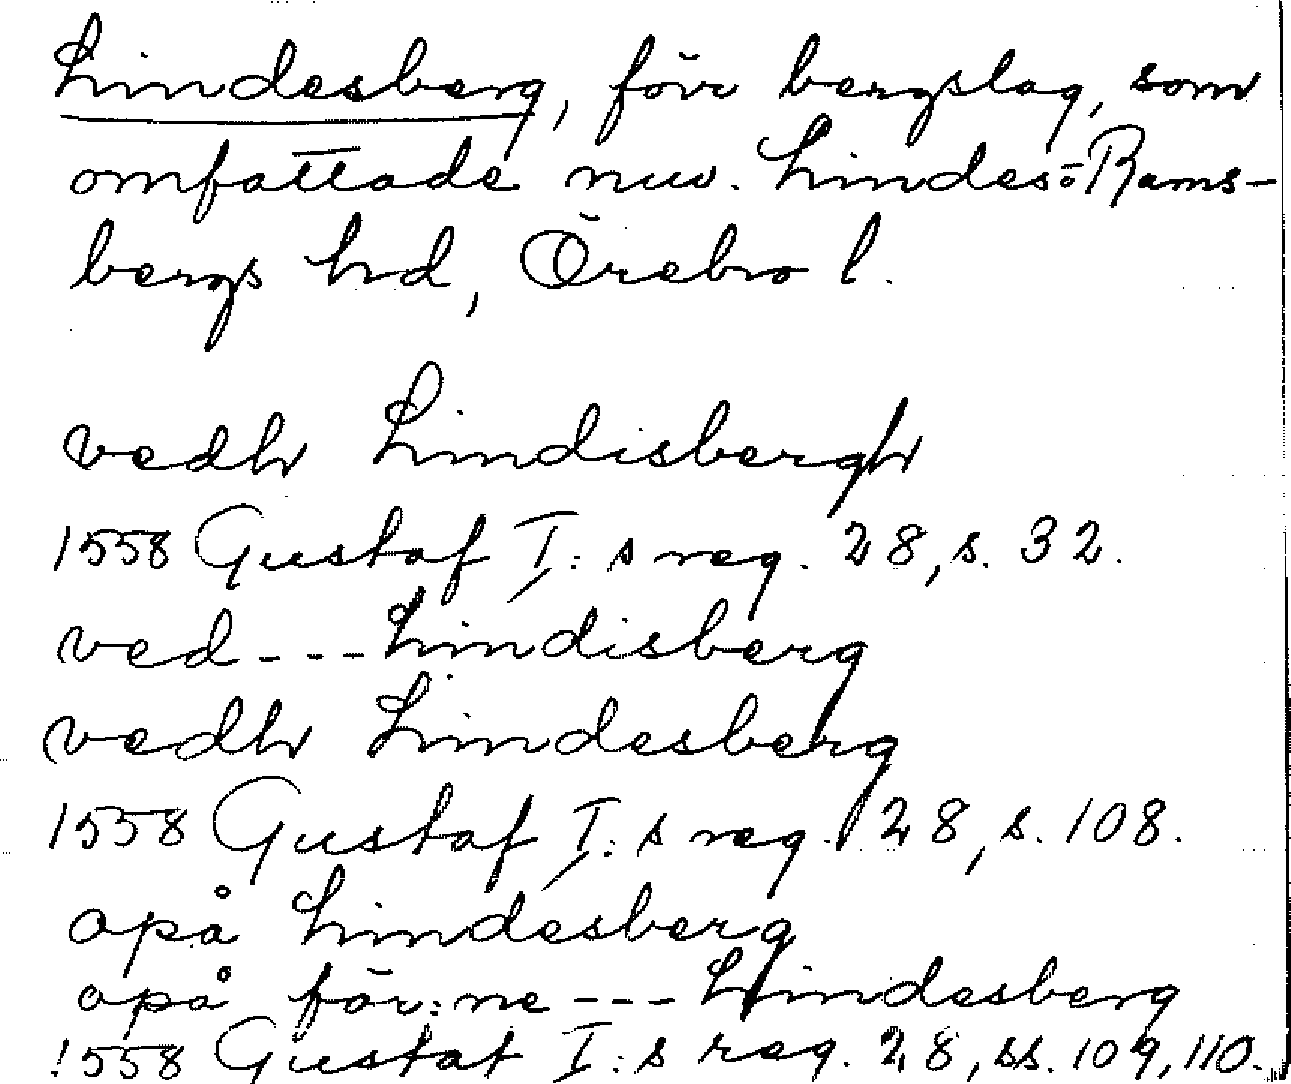 Lindesberg, förr bergslag, som
omfattade nuv. Lindes o Rams-
bergs hd, Örebro l.
vedh Lindisbergh
1558 Gustaf I:s reg. 28, s. 32.
ved --- Lindisberg
vedh Lindesberg
1558 Gustaf I:s reg. 28, s. 108.
opå Lindesberg
opå för:ne --- Lindesberg
1558 Gustaf I:s reg. 28, ss. 109, 110.